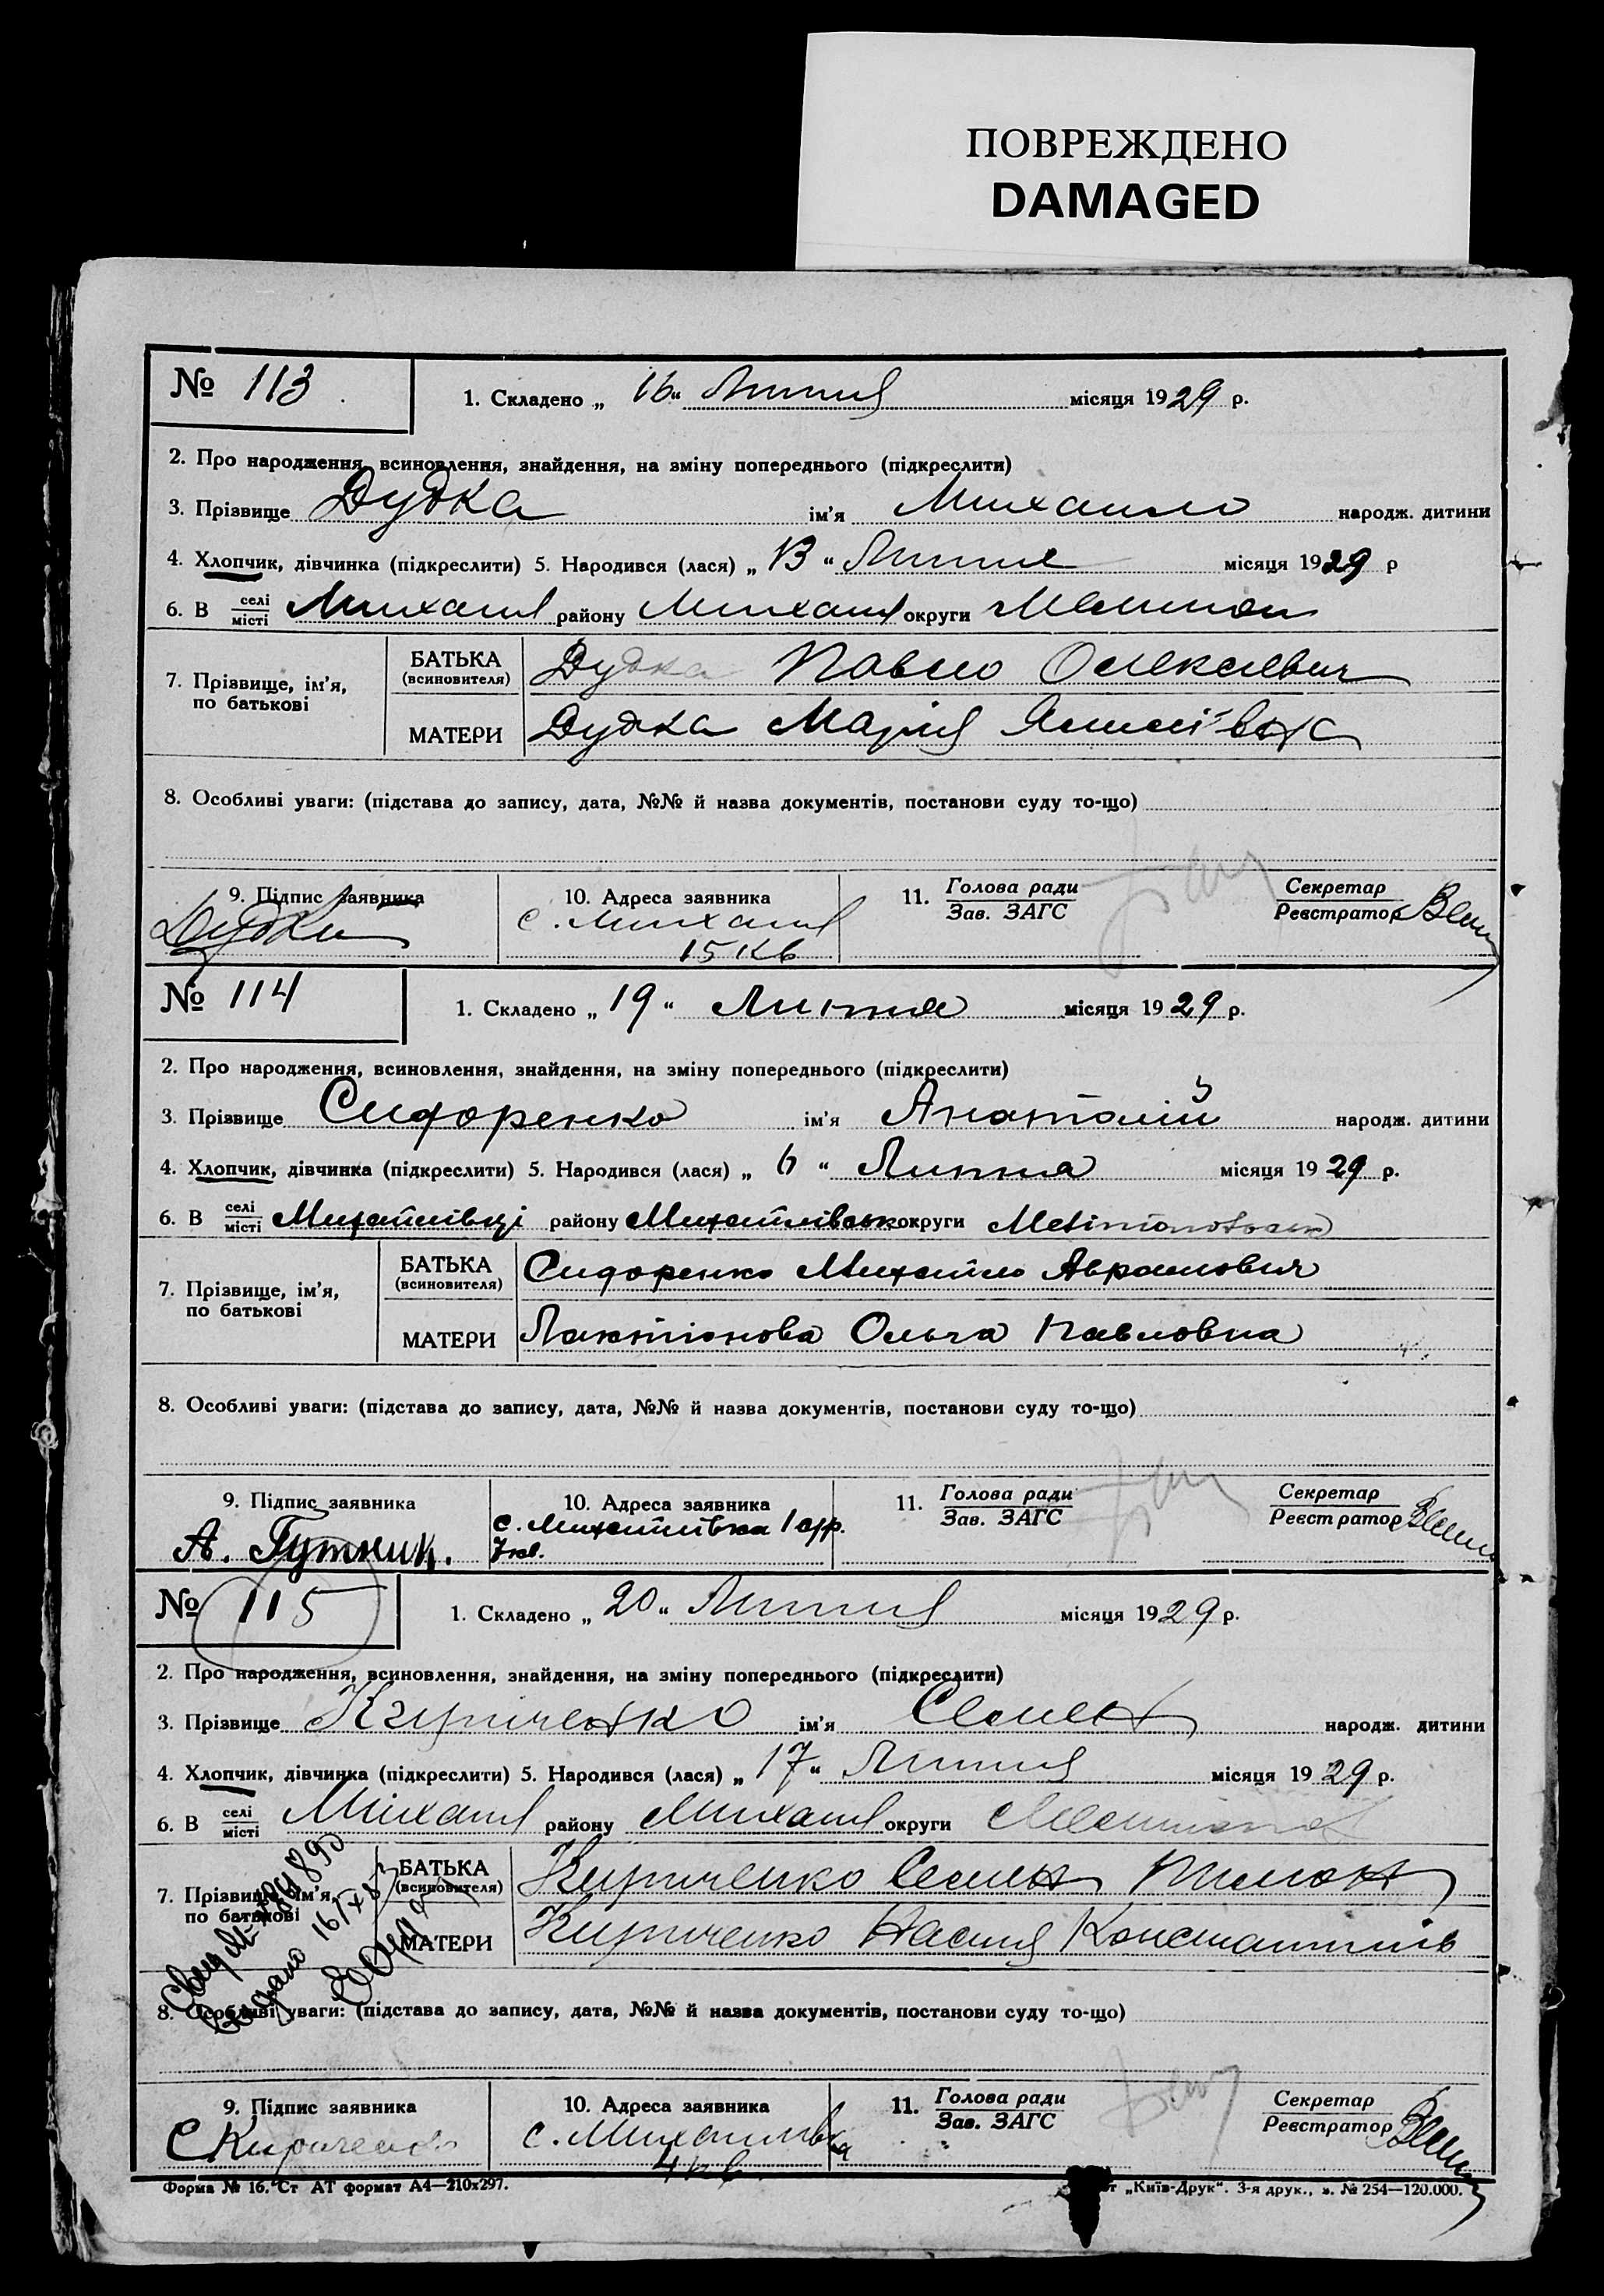 ПОВРЕЖДЕНО
DAMAGED
№ 113
1. Складено „ 16 “ Липня місяця 1929 р.
2. Про народження, всиновлення, знайдення, на зміну попереднього (підкреслити)
3. Прізвище Дудка ім’я Михайло народж. дитини
4. Хлопчик, дівчинка (підкреслити) 5. Народився (лася) „ 13 “ Липня місяця 1929 р
6. В селі/місті Михайл району Михайл округи Мелитоп
7. Прізвище, ім’я, по батькові
БАТЬКА (всиновителя) Дудка Павло Олексієвич
МАТЕРИ Дудка Марія
8. Особливі уваги: (підстава до запису, дата, №№ й назва документів, постанови суду то-що)
9. Підпис заявника 10. Адреса заявника 11. Голова ради/Зав. ЗАГС Секретар/Реєстратор
Дудка с. Михайл
15 кв
№ 114
1. Складено „ 19 “ Липня місяця 1929 р.
2. Про народження, всиновлення, знайдення, на зміну попереднього (підкреслити)
3. Прізвище Сидоренко ім’я Анатолій народж. дитини
4. Хлопчик, дівчинка (підкреслити) 5. Народився (лася) „ 6 “ Липня місяця 1929 р.
6. В селі/місті Михайлівці району Михайлівськ округи
7. Прізвище, ім’я, по батькові
БАТЬКА (всиновителя) Сидоренко Михайло Аврамович
МАТЕРИ Лактіонова Ольга Павловна
8. Особливі уваги: (підстава до запису, дата, №№ й назва документів, постанови суду то-що)
9. Підпис заявника 10. Адреса заявника 11. Голова ради/Зав. ЗАГС Секретар/Реєстратор
А. Гутник. с. Михайлівка 1
7 кв.
№ 115
1. Складено „ 20 “ Липня місяця 1929 р.
2. Про народження, всиновлення, знайдення, на зміну попереднього (підкреслити)
3. Прізвище Кириченко ім’я Семен народж. дитини
4. Хлопчик, дівчинка (підкреслити) 5. Народився (лася) „ 17 “ Липня місяця 1929 р.
6. В селі/місті Михайл району Михайл округи Мелитоп
7. Прізвище, ім’я, по батькові
БАТЬКА (всиновителя) Кириченко Семен
МАТЕРИ Кириченко Настя Константинів
8. Особливі уваги: (підстава до запису, дата, №№ й назва документів, постанови суду то-що)
9. Підпис заявника 10. Адреса заявника 11. Голова ради/Зав. ЗАГС Секретар/Реєстратор
С Кириченко с. Михайлівка
4 кв
Форма № 16. Ст АТ формат А4—210х297.
„Київ-Друк“. 3-я друк., з. № 254—120.000.